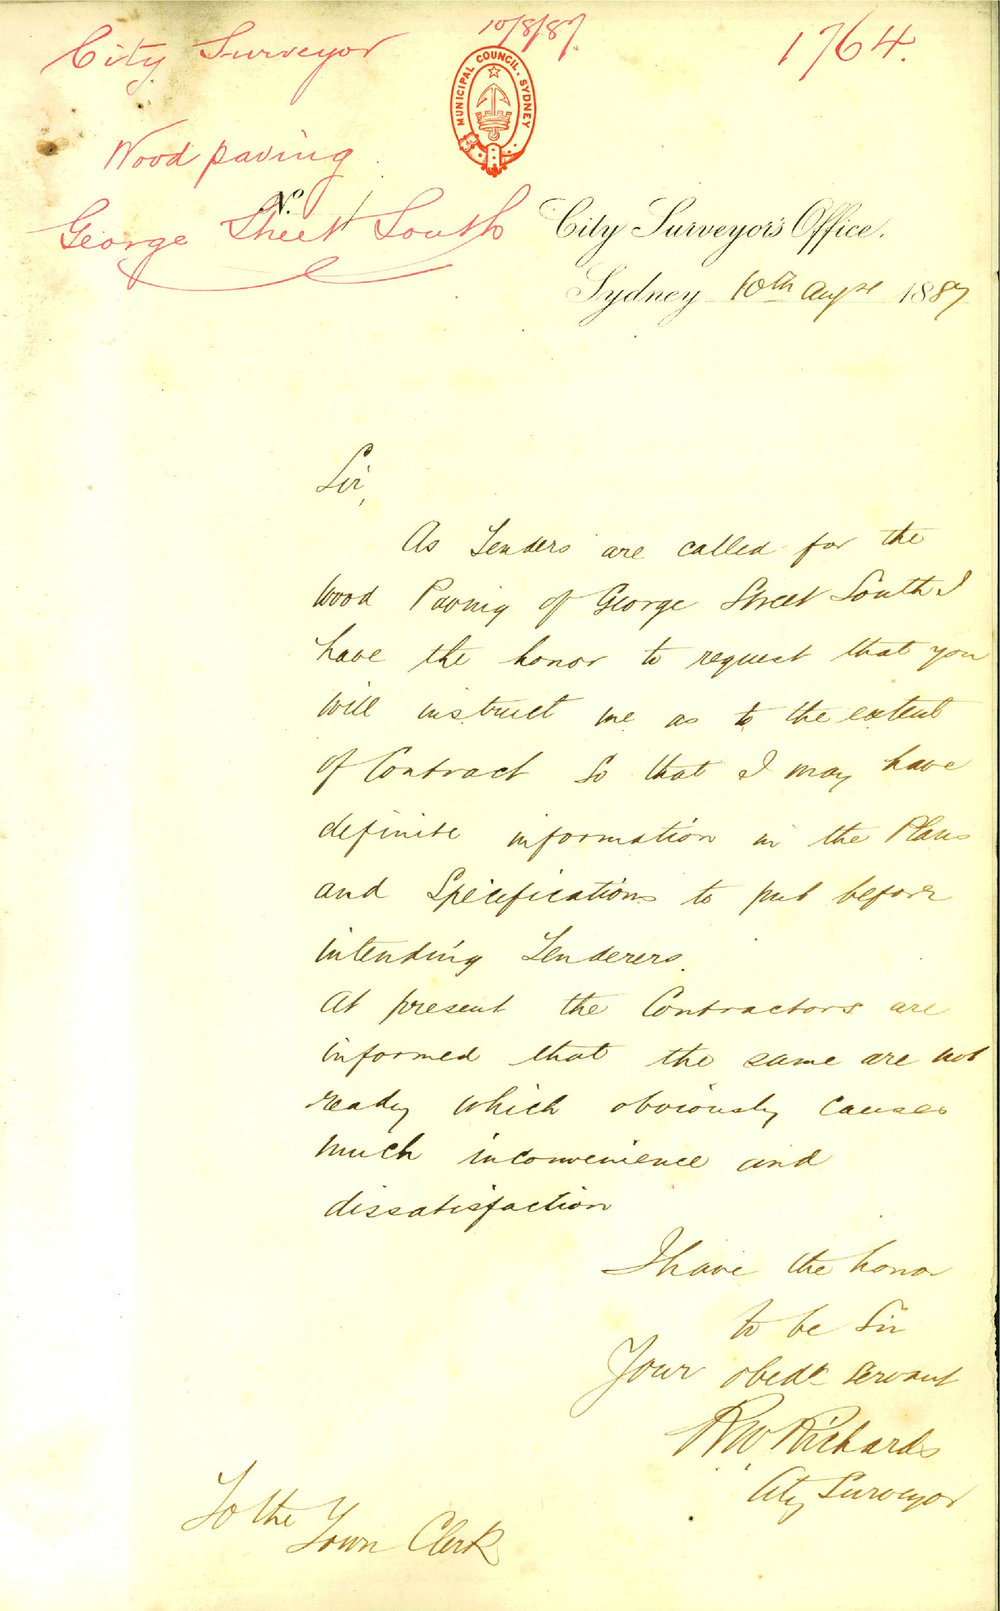 City Surveyor
10/8/87.
1764.
MUNICIPAL COUNCIL, SYDNEY
Wood paving
No.
George Street South
City Surveyor's Office.
Sydney 10th Augst 1887
Sir,
As Tenders are called for the
Wood Paving of George Street South I
have the honor to request that you
will instruct me as to the extent
of Contract so that I may have
definite information in the Plans
and Specifications to put before
intending Tenderers.
At present the Contractors are
informed that the same are not
ready which obviously causes
much inconvenience and
dissatisfaction
I have the honor
to be Sir
Your obedt servant
RW Richards
City Surveyor
To the
Town Clerk